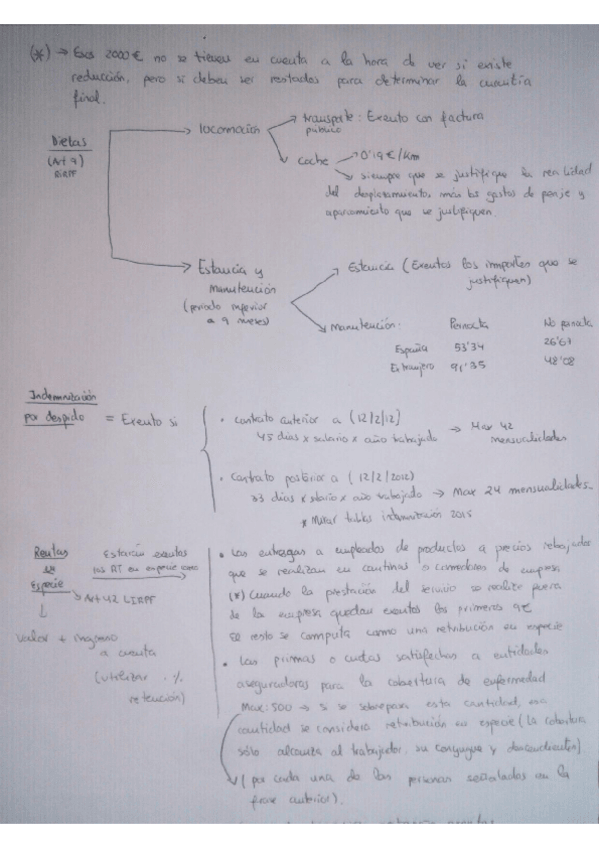 (*) → Esos 2000€ no se tienen en cuenta a la hora de ver si existe
reducción, pero si deben ser restados para determinar la cuantía
final.
Dietas
(Art 9)
RIRPF
→ locomoción
→ transporte : Exento con factura
público
→ coche → 0'19 €/Km
→ siempre que se justifique la realidad
del desplazamiento, más los gastos de peaje y
aparcamiento que se justifiquen
→ Estancia y
manutención
(periodo inferior
a 9 meses)
→ Estancia (Exentos los importes que se
justifiquen)
→ manutención: Pernocta No pernocta
España 53'34 26'67
Extranjero 91'35 48'08
Indemnización
por despido = Exento si
• contrato anterior a (12/2/12)
45 días x salario x año trabajado → Max 42
mensualidades
• Contrato posterior a (12/2/2012)
33 días x salario x año trabajado → Max 24 mensualidades.
* Mirar tablas indemnización 2015
Rentas
en
Especie
↓
valor + ingreso
a cuenta
(utilizar %
retención)
Estarán exentos
los RT en especie
→ Art 42 LIRPF
• Las entregas a empleados de productos a precios rebajados
que se realizan en cantinas o comedores de empresa
(*) Cuando la prestación del servicio se realize fuera
de la empresa quedan exentos los primeros 9€
El resto se computa como una retribución en especie
• Las primas o cuotas satisfechas a entidades
aseguradoras para la cobertura de enfermedad
Max: 500 → si se sobrepasa esta cantidad, esa
cantidad se considera retribución en especie (la cobertura
sólo alcanza al trabajador, su conyugue y descendientes).
(por cada una de las personas señaladas en la
frase anterior).